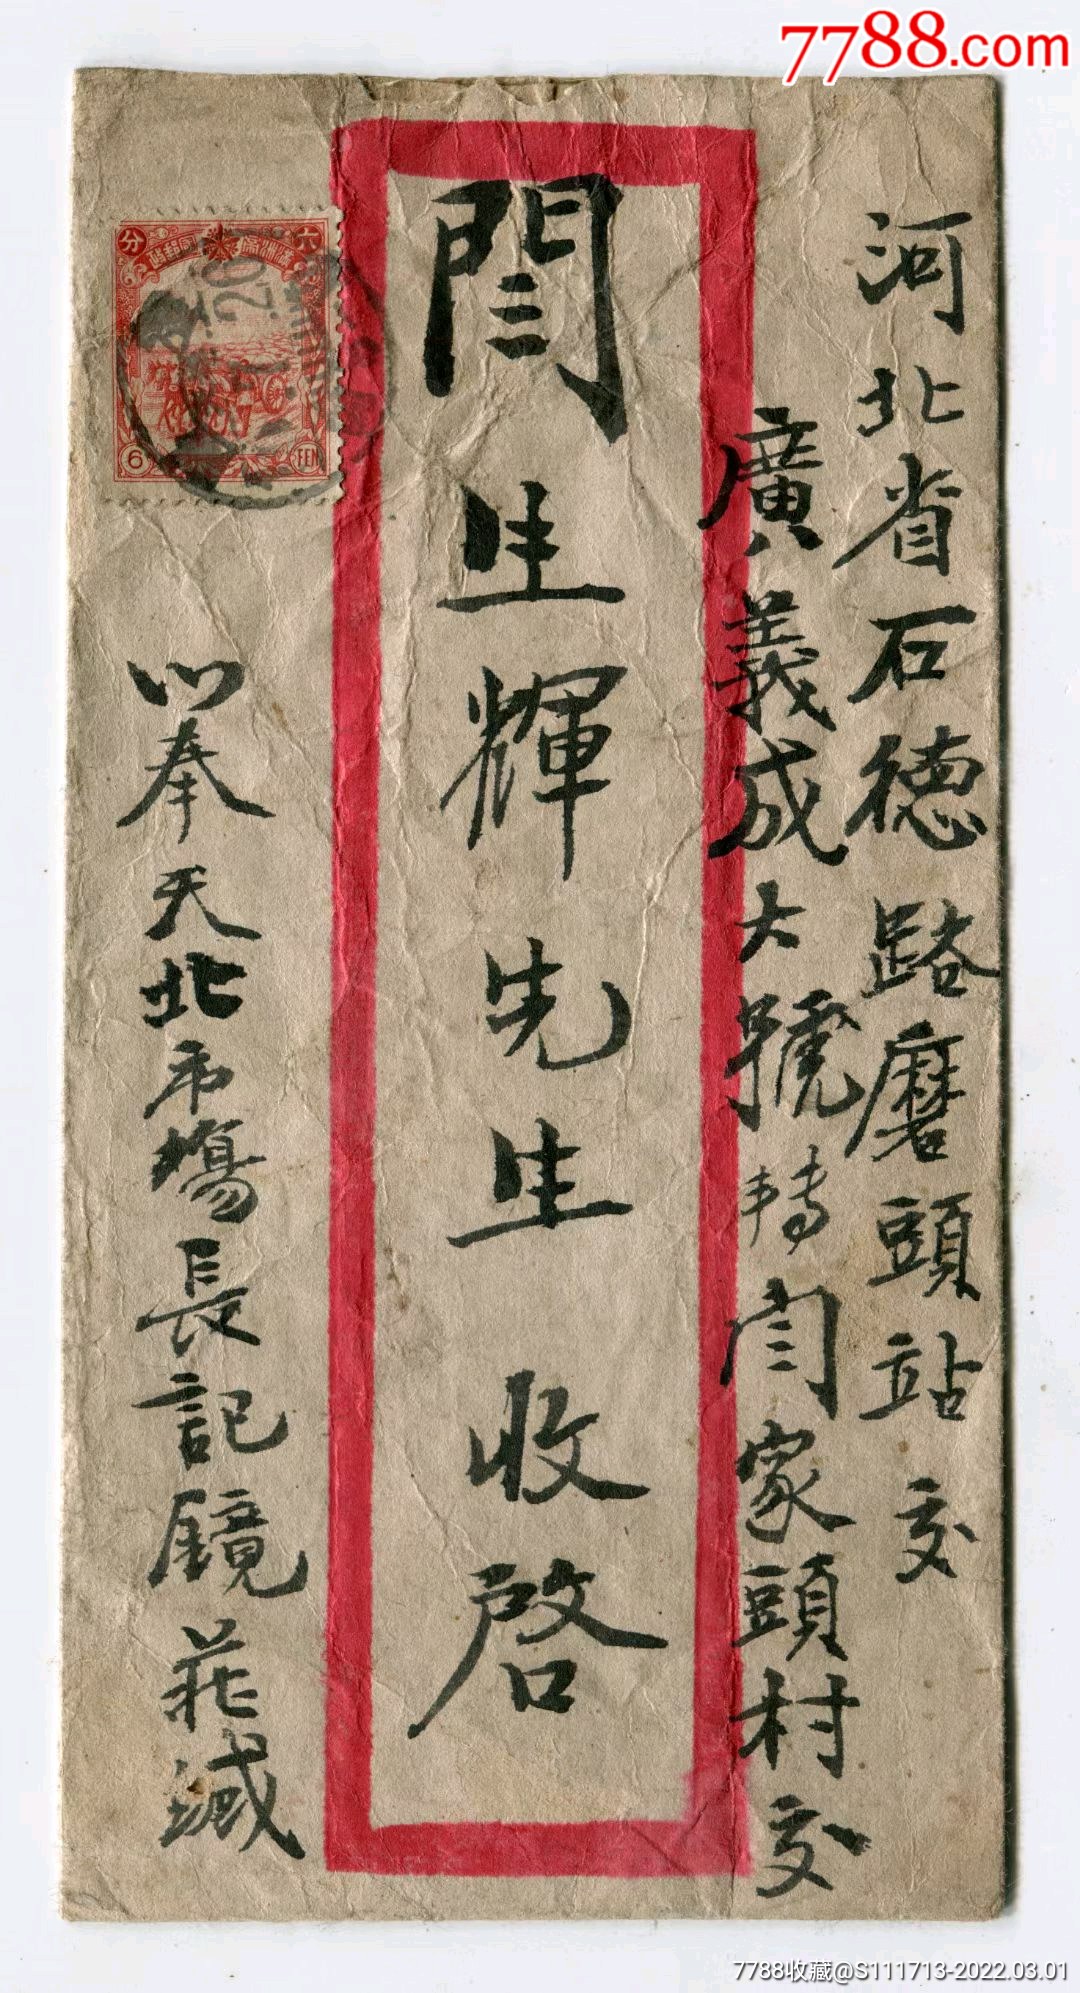 7788.com
河北省石德路磨頭站交
廣義成大號轉閆家頭村交
閆生輝先生收啓
奉天北市場長記鏡莊緘
六分
滿洲帝國郵政
6
FEN
7788收藏@S111713-2022.03.01